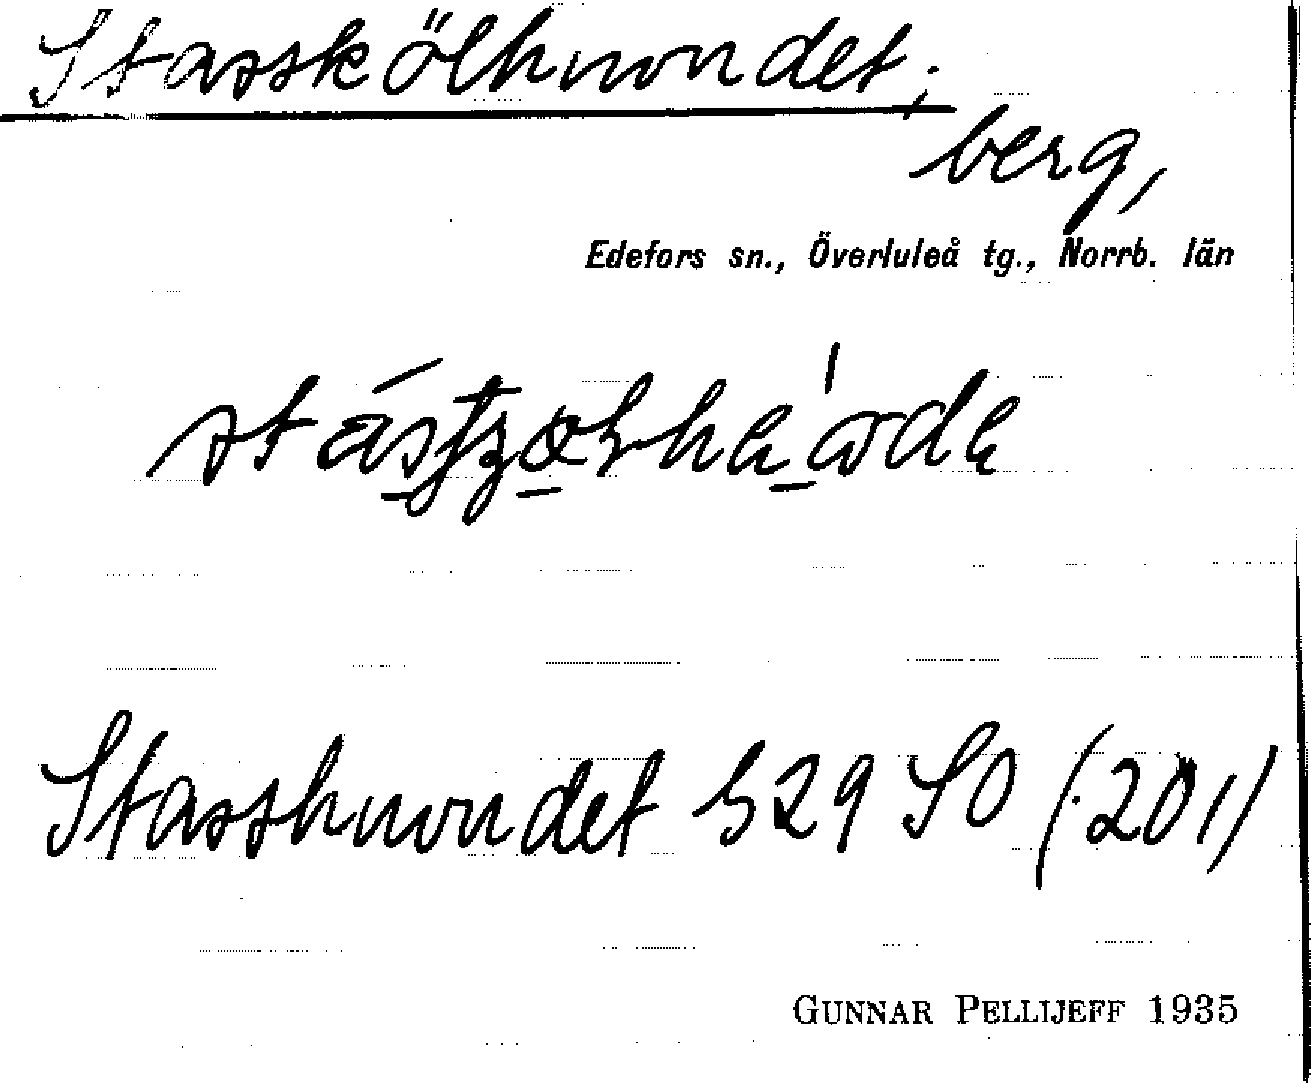 Stasskölknondet;
berg,
Edefors sn., Överluleå tg., Norrb. län
Stassknondet 529 SO (201)
GUNNAR PELLIJEFF 1935